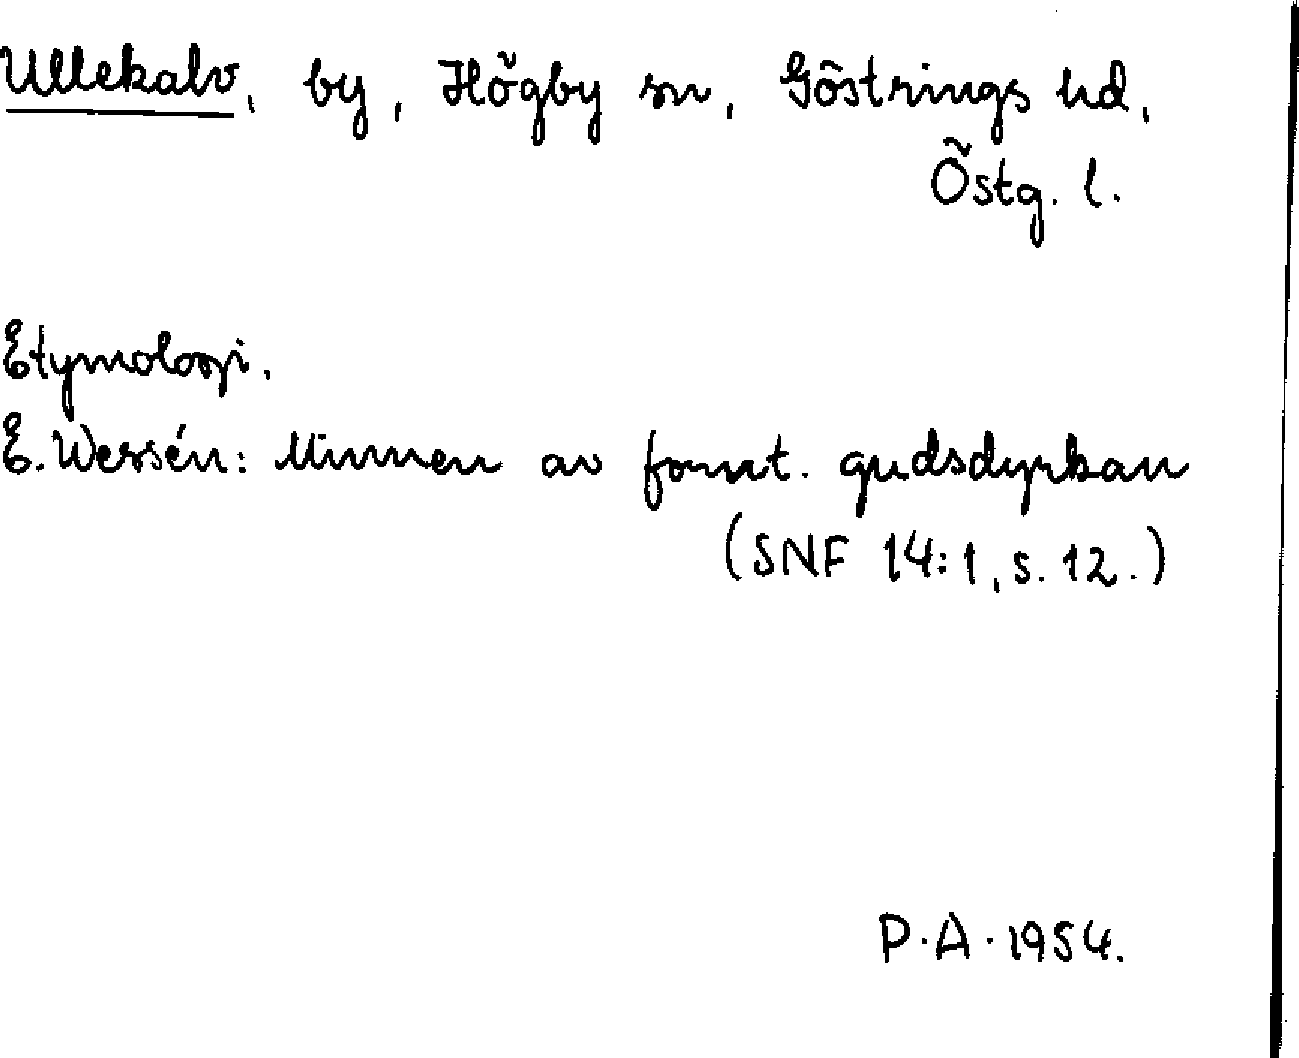 Ullekalv, by, Högby sn, Göstrings hd,
Östg. l.
Etymologi.
E. Wessén: Minnen av fornt. gudsdyrkan
(SNF 14:1, s. 12.)
P.A. 1954.